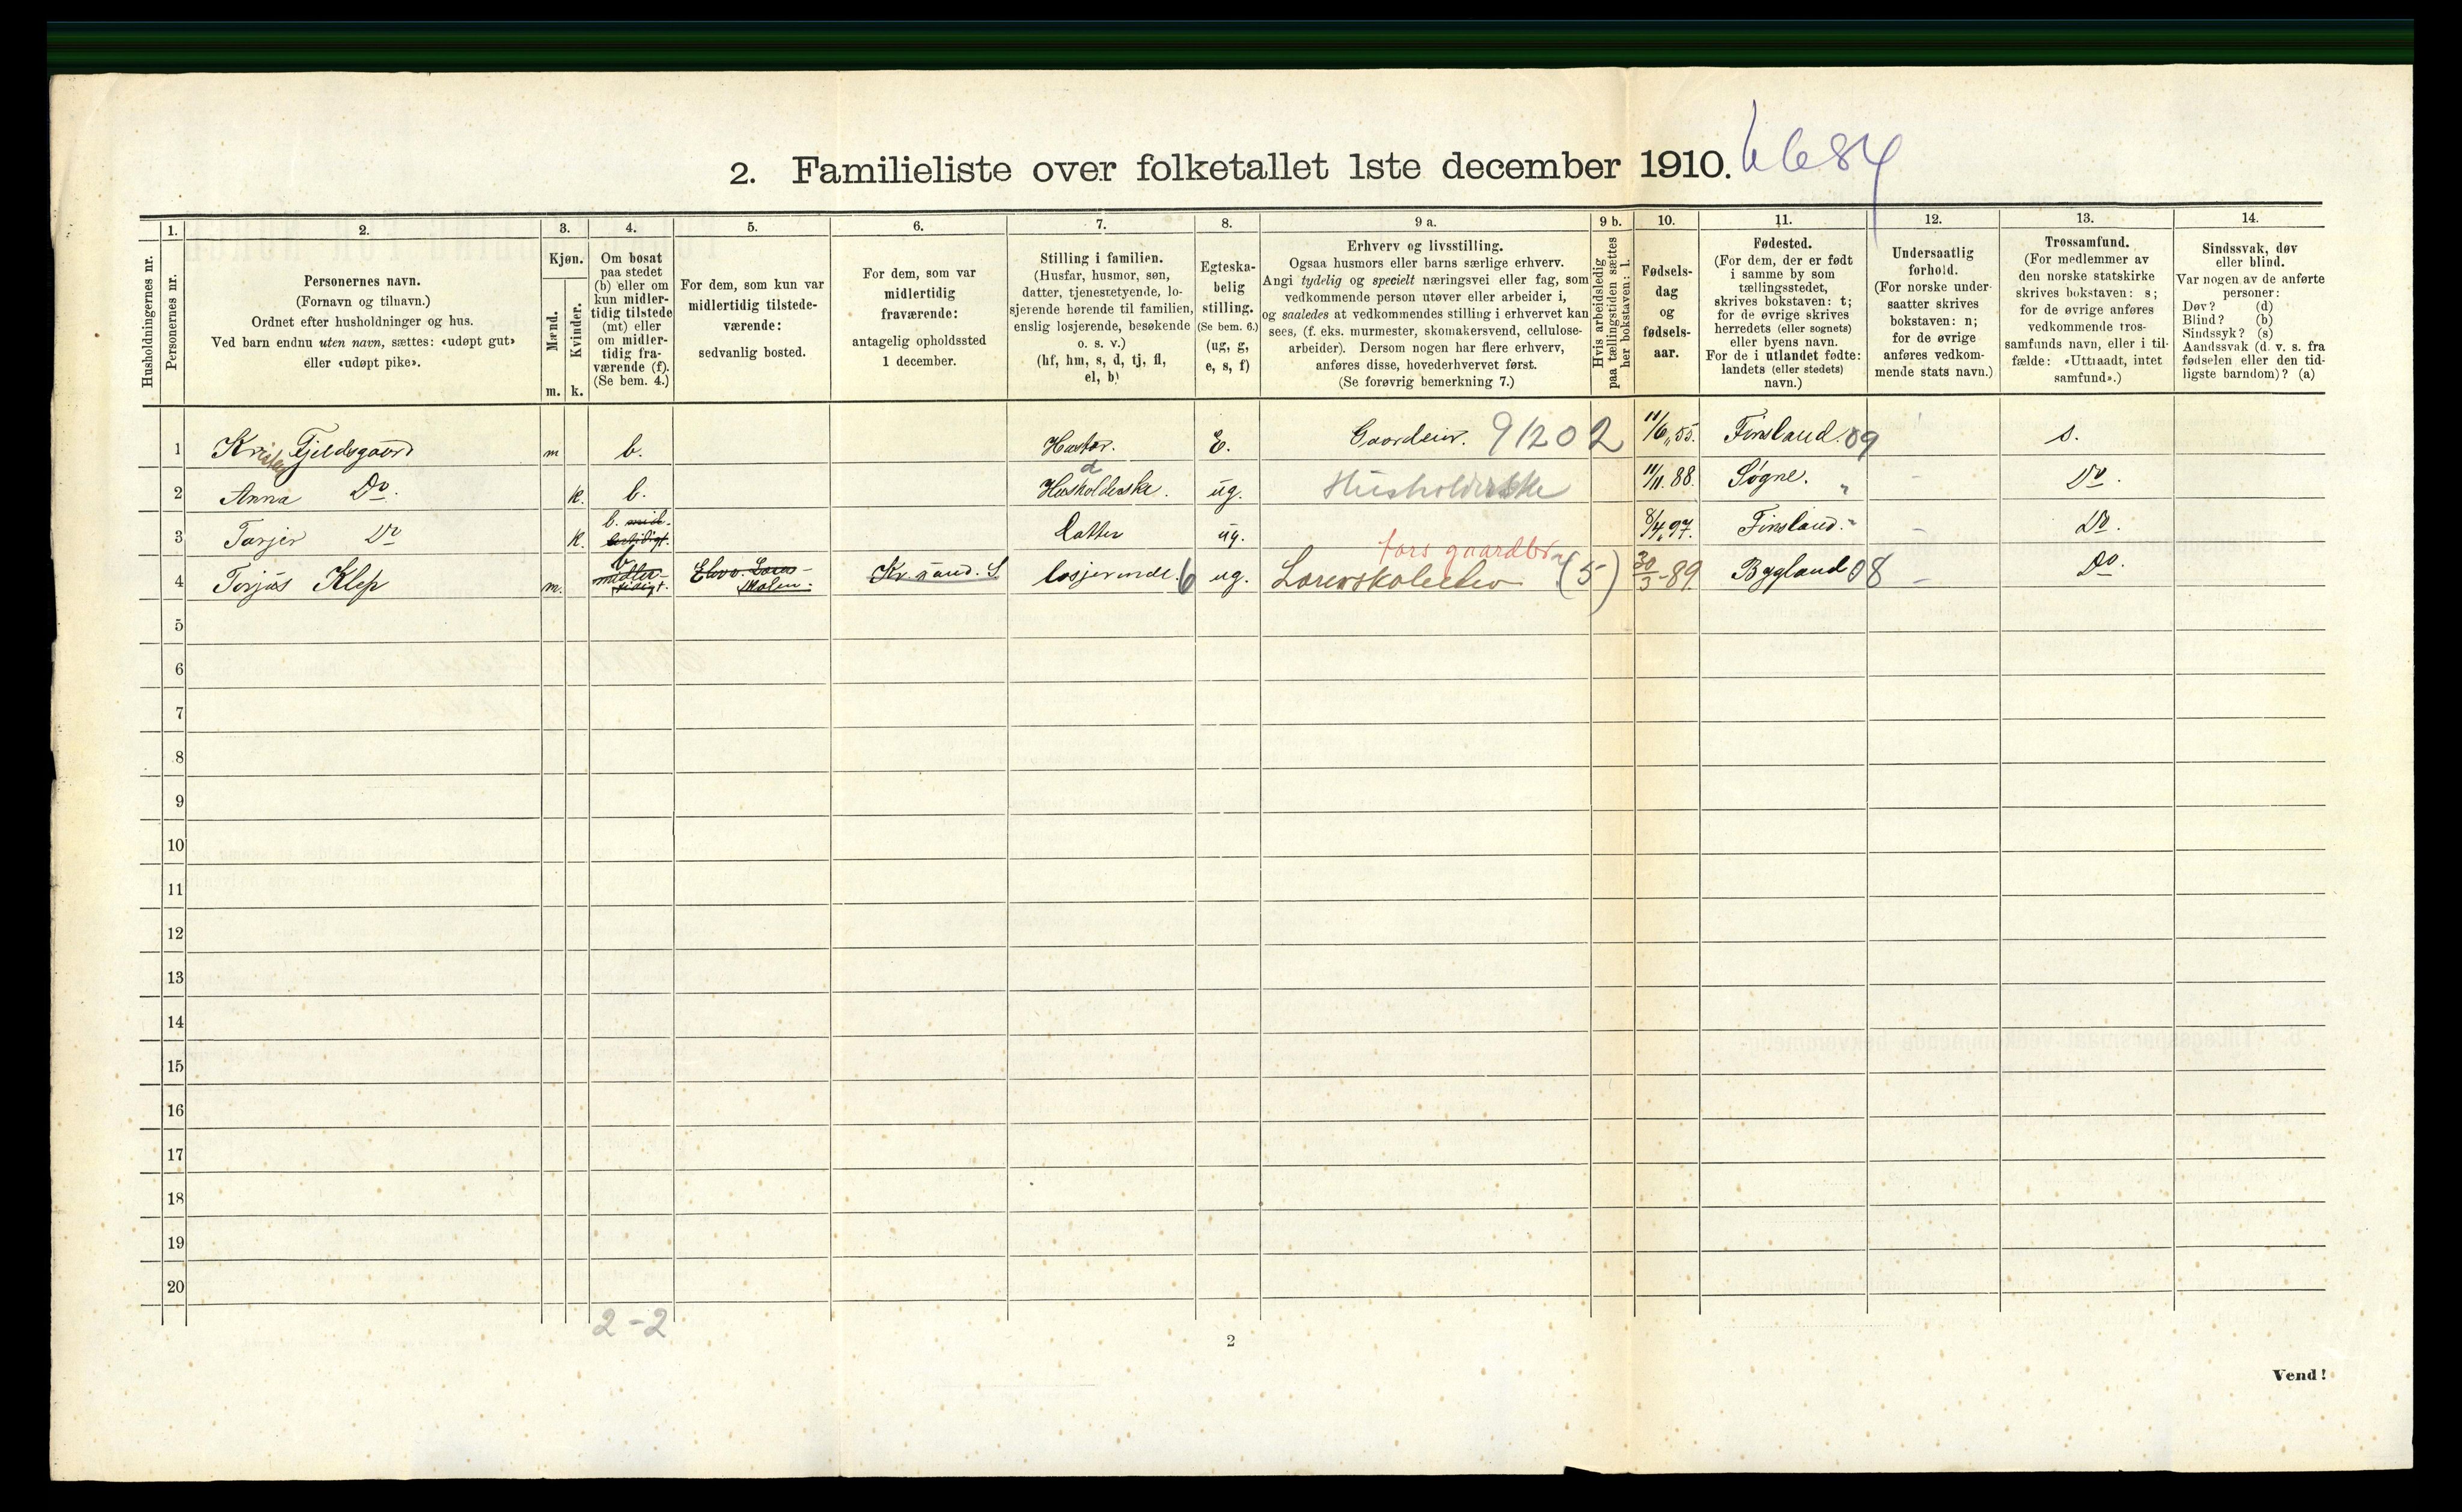 2. Familieliste over folketallet 1ste december 1910. 6684
1. 2. 3. 4. 5. 6. 7. 8. 9 a. 9 b. 10. 11. 12. 13. 14.
Husholdningernes nr.
Personernes nr.
Personernes navn.
(Fornavn og tilnavn.)
Ordnet efter husholdninger og hus.
Ved barn endnu uten navn, sættes: «udøpt gut»
eller «udøpt pike».
Kjøn.
Mænd.
Kvinder.
m. k.
Om bosat
paa stedet
(b) eller om
kun midler-
tidig tilstede
(mt) eller
om midler-
tidig fra-
værende (f).
(Se bem. 4.)
For dem, som kun var
midlertidig tilstede-
værende:
sedvanlig bosted.
For dem, som var
midlertidig
fraværende:
antagelig opholdssted
1 december.
Stilling i familien.
(Husfar, husmor, søn,
datter, tjenestetyende, lo-
sjerende hørende til familien,
enslig losjerende, besøkende
o. s. v.)
(hf, hm, s, d, tj, fl,
el, b)
Egteska-
belig
stilling.
(Se bem. 6.)
(ug, g,
e, s, f)
Erhverv og livsstilling.
Ogsaa husmors eller barns særlige erhverv.
Angi tydelig og specielt næringsvei eller fag, som
vedkommende person utøver eller arbeider i,
og saaledes at vedkommendes stilling i erhvervet kan
sees, (f. eks. murmester, skomakersvend, cellulose-
arbeider). Dersom nogen har flere erhverv,
anføres disse, hovederhvervet først.
(Se forøvrig bemerkning 7.)
Hvis arbeidsledig
paa tællingstiden sættes
her bokstaven: l.
Fødsels-
dag
og
fødsels-
aar.
Fødested.
(For dem, der er født
i samme by som
tællingsstedet,
skrives bokstaven: t;
for de øvrige skrives
herredets (eller sognets)
eller byens navn.
For de i utlandet fødte:
landets (eller stedets)
navn.)
Undersaatlig
forhold.
(For norske under-
saatter skrives
bokstaven: n;
for de øvrige
anføres vedkom-
mende stats navn.)
Trossamfund.
(For medlemmer av
den norske statskirke
skrives bokstaven: s;
for de øvrige anføres
vedkommende tros-
samfunds navn, eller i til-
fælde: «Uttraadt, intet
samfund».)
Sindssvak, døv
eller blind.
Var nogen av de anførte
personer:
Døv? (d)
Blind? (b)
Sindssyk? (s)
Aandssvak (d. v. s. fra
fødselen eller den tid-
ligste barndom)? (a)
1 Fjeldsgaard m b. Husfar. E. Gaardeier. 91202 11/6 55. Finsland. 09 s.
2 Anna Do. k. b. d Husholderske. ug. Husholderske 11/11. 88. Søgne. " - Do.
3 Do k. b. midlertidigt. Datter ug. 8/4 97. Finsland. " - Do.
fors gaardbr
4 Torjus Klep m. b midlertidigt. Elev v. Lærerskolen. Kr.sand. S losjerende. 6 ug. Lærerskoleelev (5) 30/3-89. Bygland 08 - Do.
5
6
7
8
9
10
11
12
13
14
15
16
17
18
19
20
2-2
2
Vend!